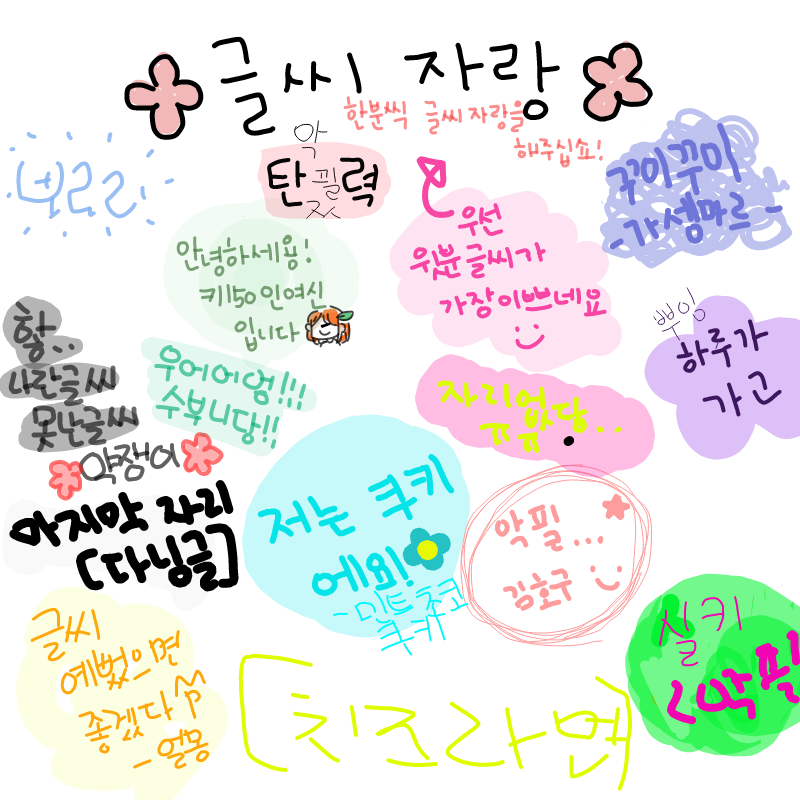 글씨 자랑
한분씩 글씨 자랑을
해주십쇼!
보르리
악
탄필력
꾸미꾸미
-가셈마르-
우선
윗분글씨가
가장이쁘네요
안녕하세용!
키150인여신
입니다
핳..
나란글씨
못난글씨
약쟁이
우어어엄!!!
수부니당!!
쁘잉
하루가
가고
자리없당..
ㅠㅠ
마지막 자리
[다닝글]
저는 쿠키
에요!
-민트초코
쿠키
악필...
김호구
글씨
예뻤으면
좋겠다
-얼몽
[치즈라면]
실키
<악필